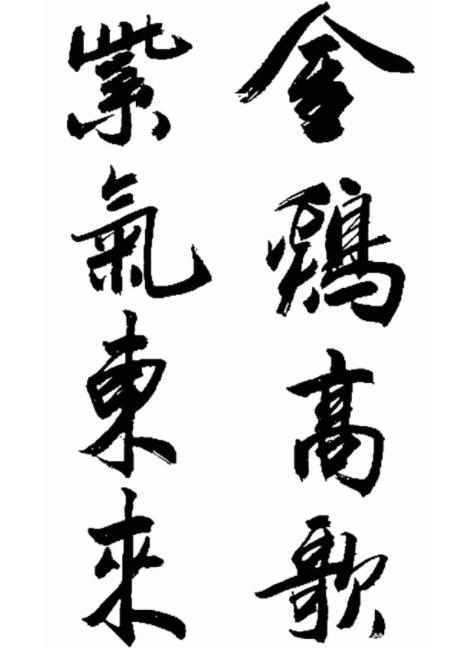 金鷄高歌
紫氣東來